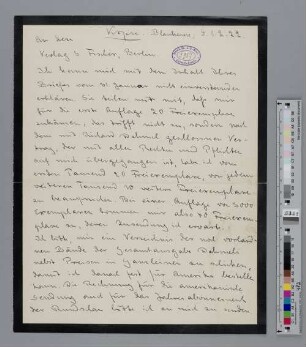 An den
Verlag S. Fischer, Berlin
Ich kann mich mit dem Inhalt Ihres
Briefes vom 31. Januar nicht einverstanden
erklären. Sie teilen mir mit, daß mir
für die erste Auflage 20 Freiexemplare
zukämen, das trifft nicht zu, sondern nach
dem mit Richard Dehmel geschlossenen Ver-
trag, der mit allen Rechten und Pflichten
auf mich übergegangen ist, habe ich vom
ersten Tausend 20 Freiexemplare, von jedem
weiteren Tausend 10 weitere Freiexemplare
zu beanspruchen. Bei einer Auflage von 3000
Exemplaren kommen mir also 40 Freiexem-
plare zu, deren Zusendung ich erwarte.
Ich bitte um ein Verzeichnis der noch vorhan-
denen Bände der Gesamtausgabe Dehmels
nebst Preisen in
damit ich danach jetzt für Amerika bestelle
kann. Die Rechnung für die amerikanische
Sendung und für das Jahresabonnement
der Rundschau bitte ich an mich zu senden